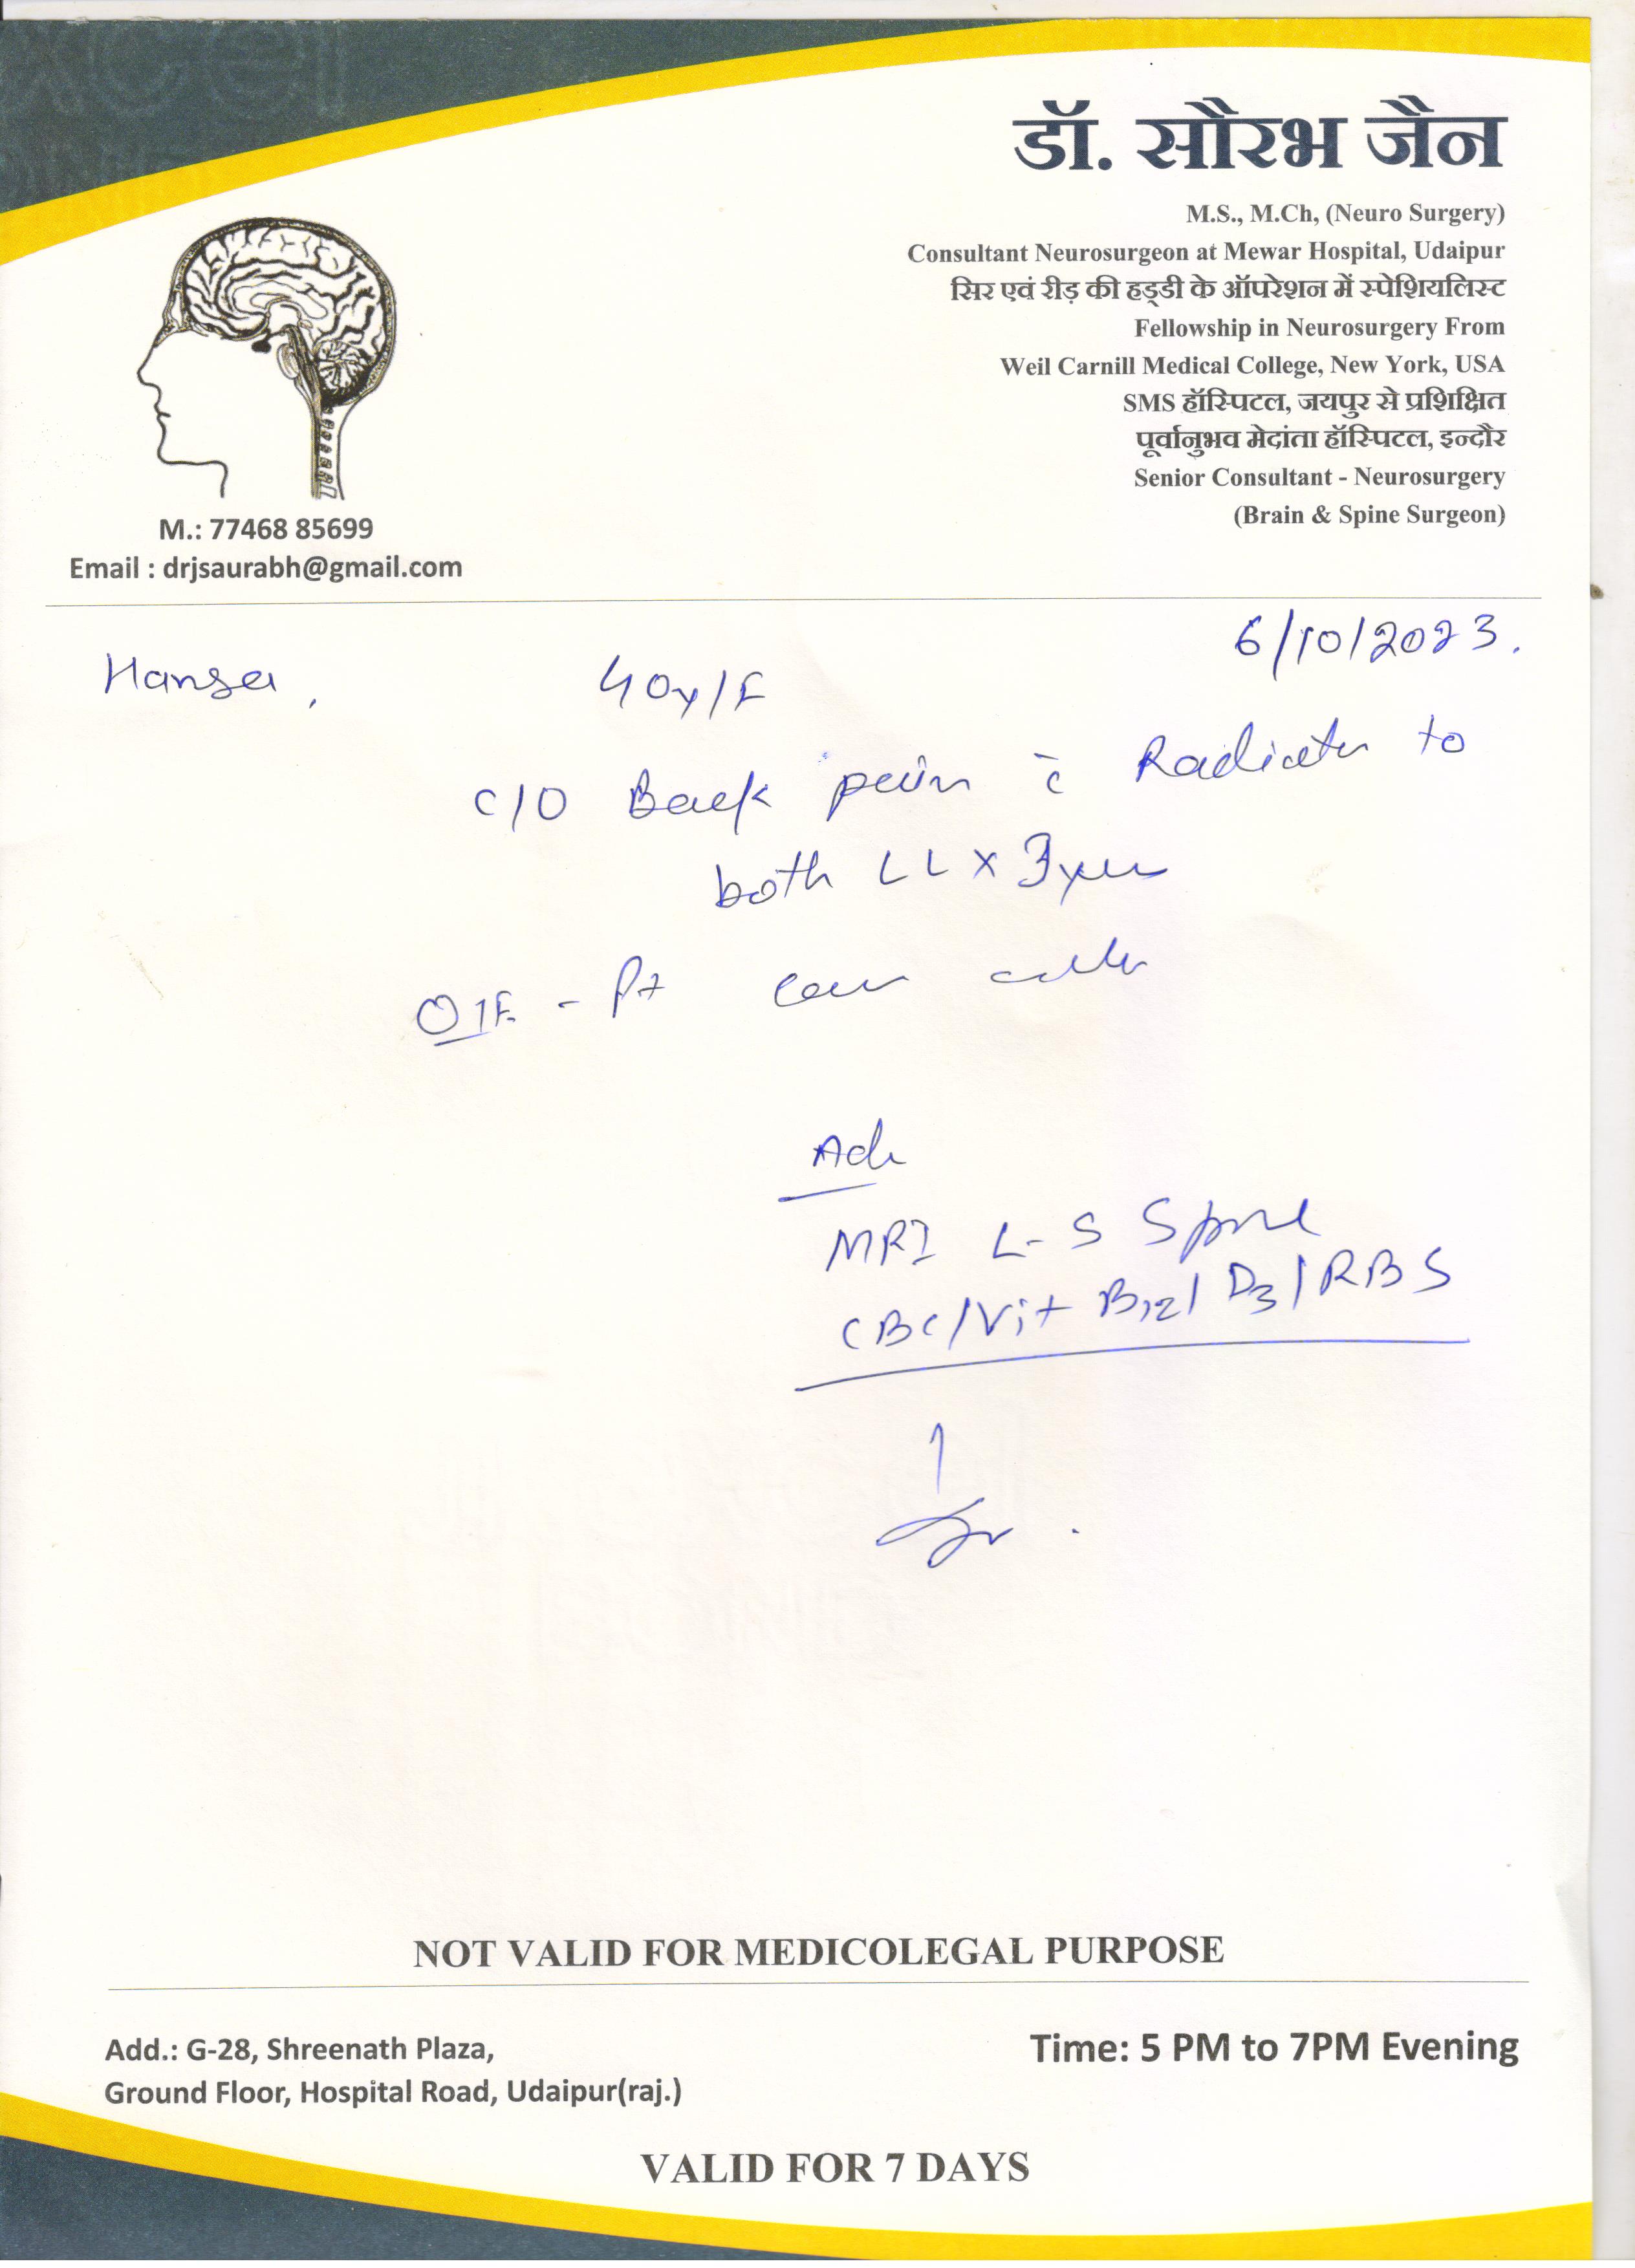 डॉ. सौरभ जैन
M.S., M.Ch, (Neuro Surgery)
Consultant Neurosurgeon at Mewar Hospital, Udaipur
सिर एवं रीड़ की हड्डी के ऑपरेशन में स्पेशियलिस्ट
Fellowship in Neurosurgery From
Weil Carnill Medical College, New York, USA
SMS हॉस्पिटल, जयपुर से प्रशिक्षित
पूर्वानुभव मेदांता हॉस्पिटल, इन्दौर
Senior Consultant - Neurosurgery
(Brain & Spine Surgeon)
M.: 77468 85699
Email : drjsaurabh@gmail.com
6/10/2023.
Hansa, 40y/F
C/O Back pain c̄ Radiates to
both LL x 3 yrs
O/E - Pt
Adv
MRI L-S Spine
CBC/Vit B12/D3/RBS
NOT VALID FOR MEDICOLEGAL PURPOSE
Add.: G-28, Shreenath Plaza,
Ground Floor, Hospital Road, Udaipur(raj.)
Time: 5 PM to 7PM Evening
VALID FOR 7 DAYS